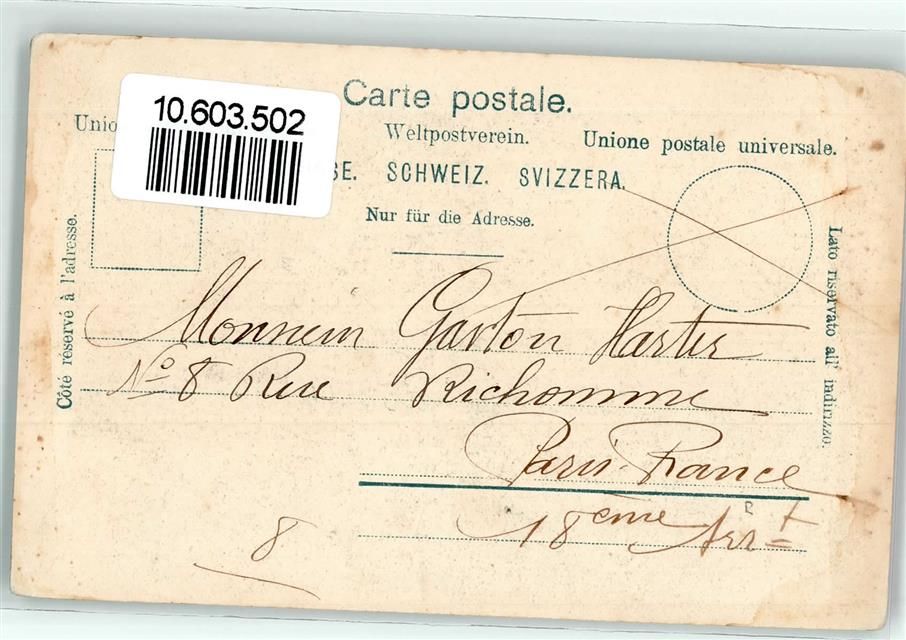 Carte postale.
10.603.502
Unio
Weltpostverein. Unione postale universale.
SE. SCHWEIZ. SVIZZERA.
Nur für die Adresse.
Côté réservé à l'adresse.
Lato riservato all' indirizzo.
Monsieur Gaston Harter
No 8 Rue Richomme
Paris. France
18eme Arrt
8